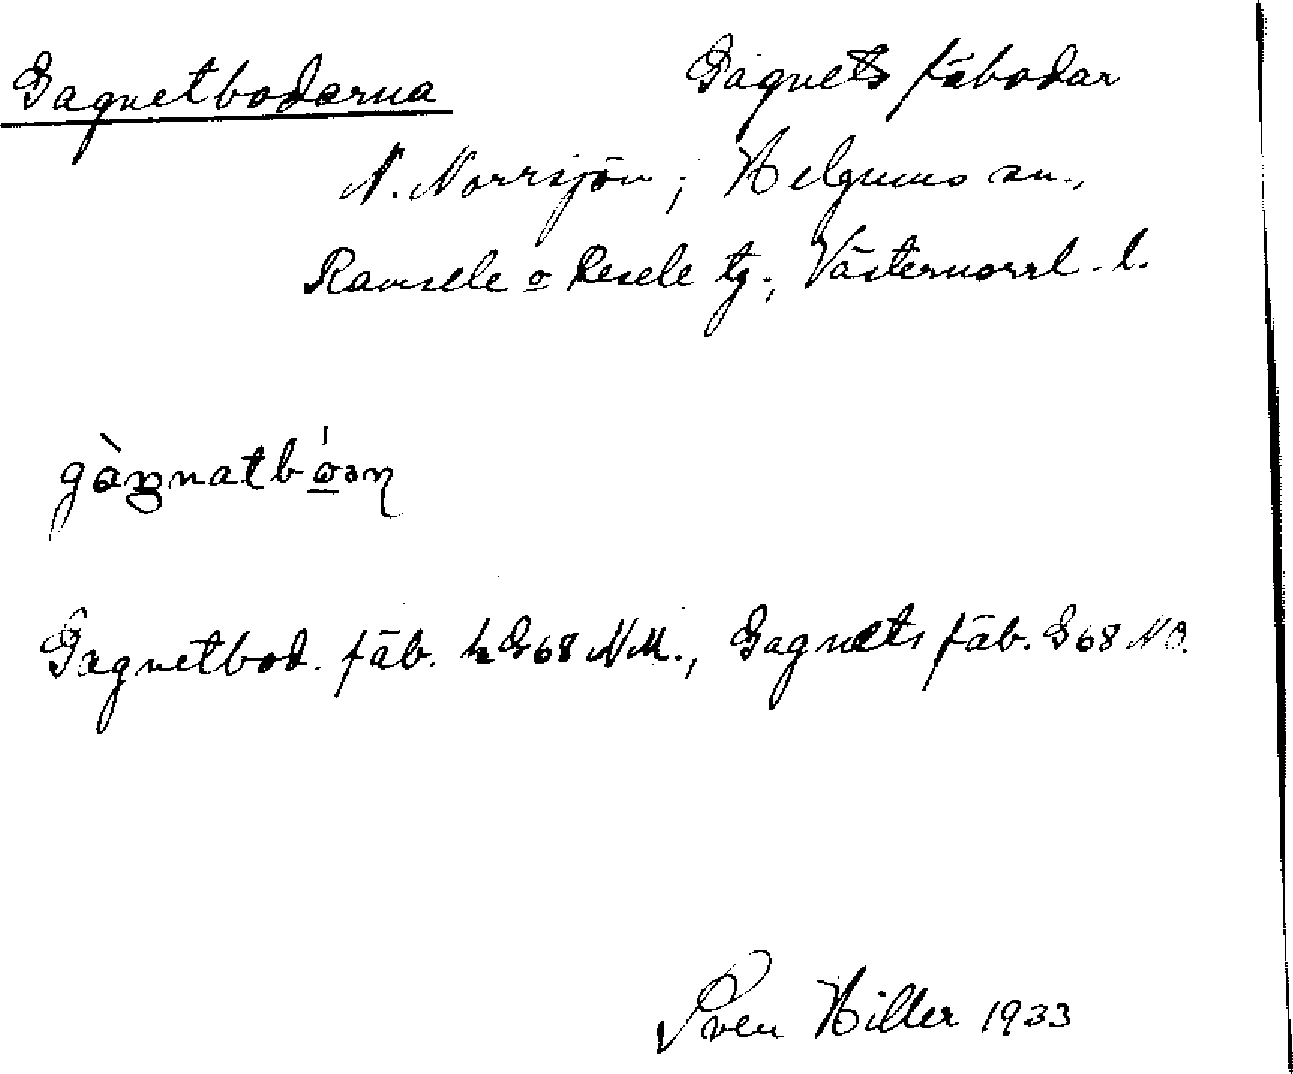 Gagnetbodarna Gagnets fäbodar
N. Norrsjön; Helgums sn.,
Ramsele o Resele tg., Västernorrl. l.
Gagnetbod. fäb. G68 NM., Gagnets fäb. G68 NO.
Sven Hiller 1933